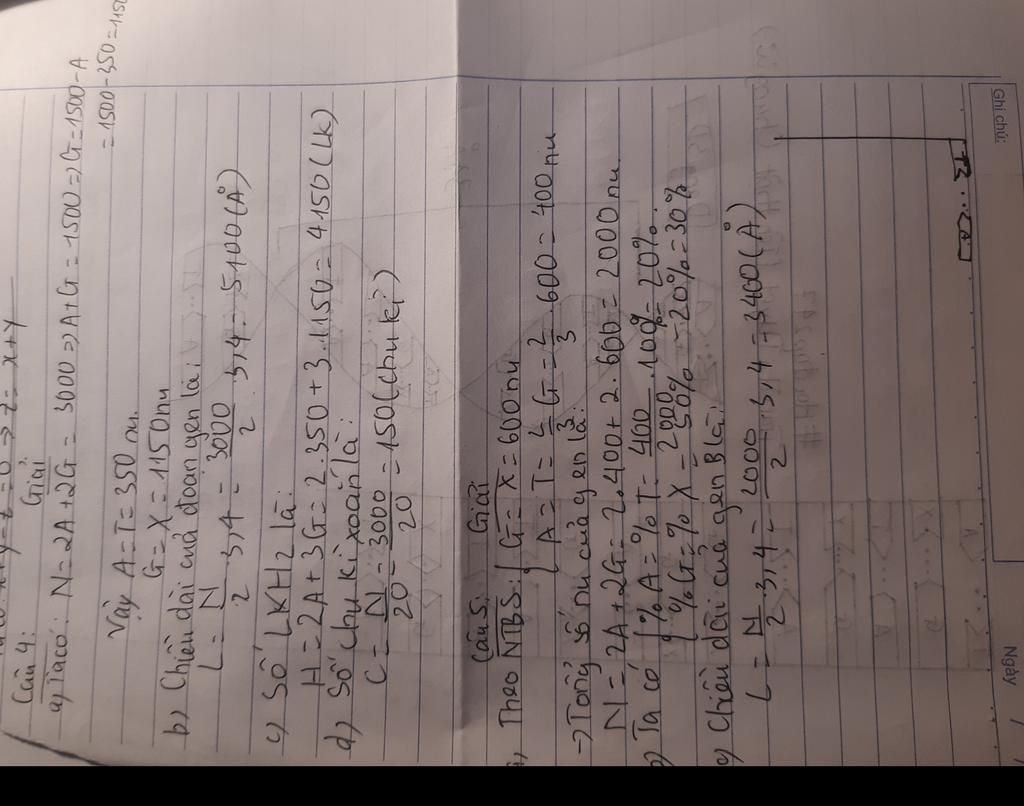 Câu 4: Giải:
a) Ta có: N = 2A + 2G = 3000 => A + G = 1500 => G = 1500 - A
= 1500 - 350 = 1150
Vậy A = T = 350 nu.
G = X = 1150 nu
b) Chiều dài của đoạn gen là:
L = N/2 . 3,4 = 3000/2 . 3,4 = 5100 (Å)
c) Số LKH2 là:
H = 2A + 3G = 2.350 + 3.1150 = 4150 (LK)
d) Số chu kì xoắn là:
C = N/20 = 3000/20 = 150 (chu kì)
Câu 5: Giải
a) Theo NTBS: { G = X = 600 nu
A = T = 2/3 G = 2/3 . 600 = 400 nu
-> Tổng số nu của gen là:
N = 2A + 2G = 2.400 + 2.600 = 2000 nu.
b) Ta có { %A = %T = 400/2000 . 100% = 20%.
%G = %X = 50% - 20% = 30%
c) Chiều dài của gen B là:
L = N/2 . 3,4 = 2000/2 . 3,4 = 3400 (Å)
Ghi chú:
Ngày